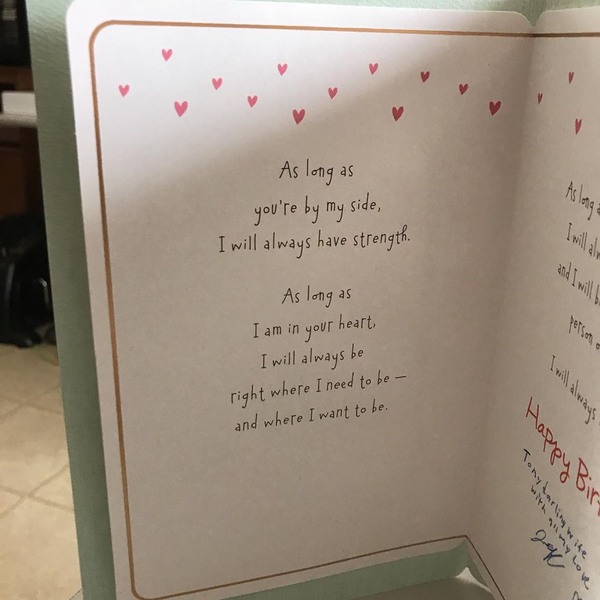 As long as
you're by my side,
I will always have strength.
As long as
I am in your heart,
I will always be
right where I need to be —
and where I want to be.
As long
I will
and I will
person
I will always
Happy
To my darling wife
with all my love